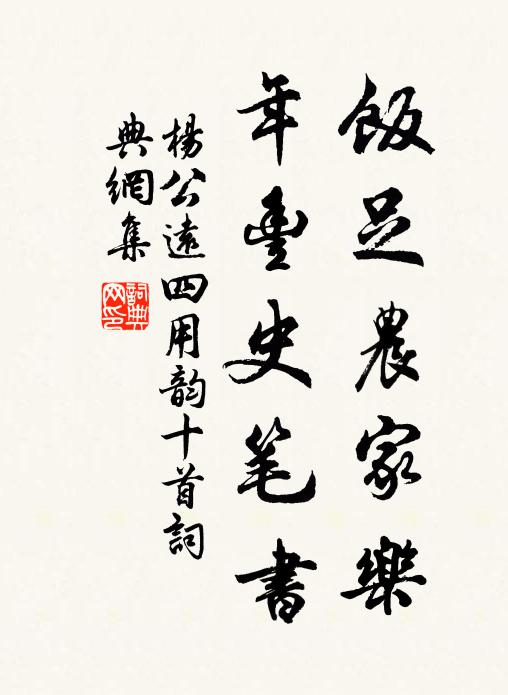 飯足農家樂
年豐史笔書
楊公遠四用韵十首詞
典網集
詞典网印